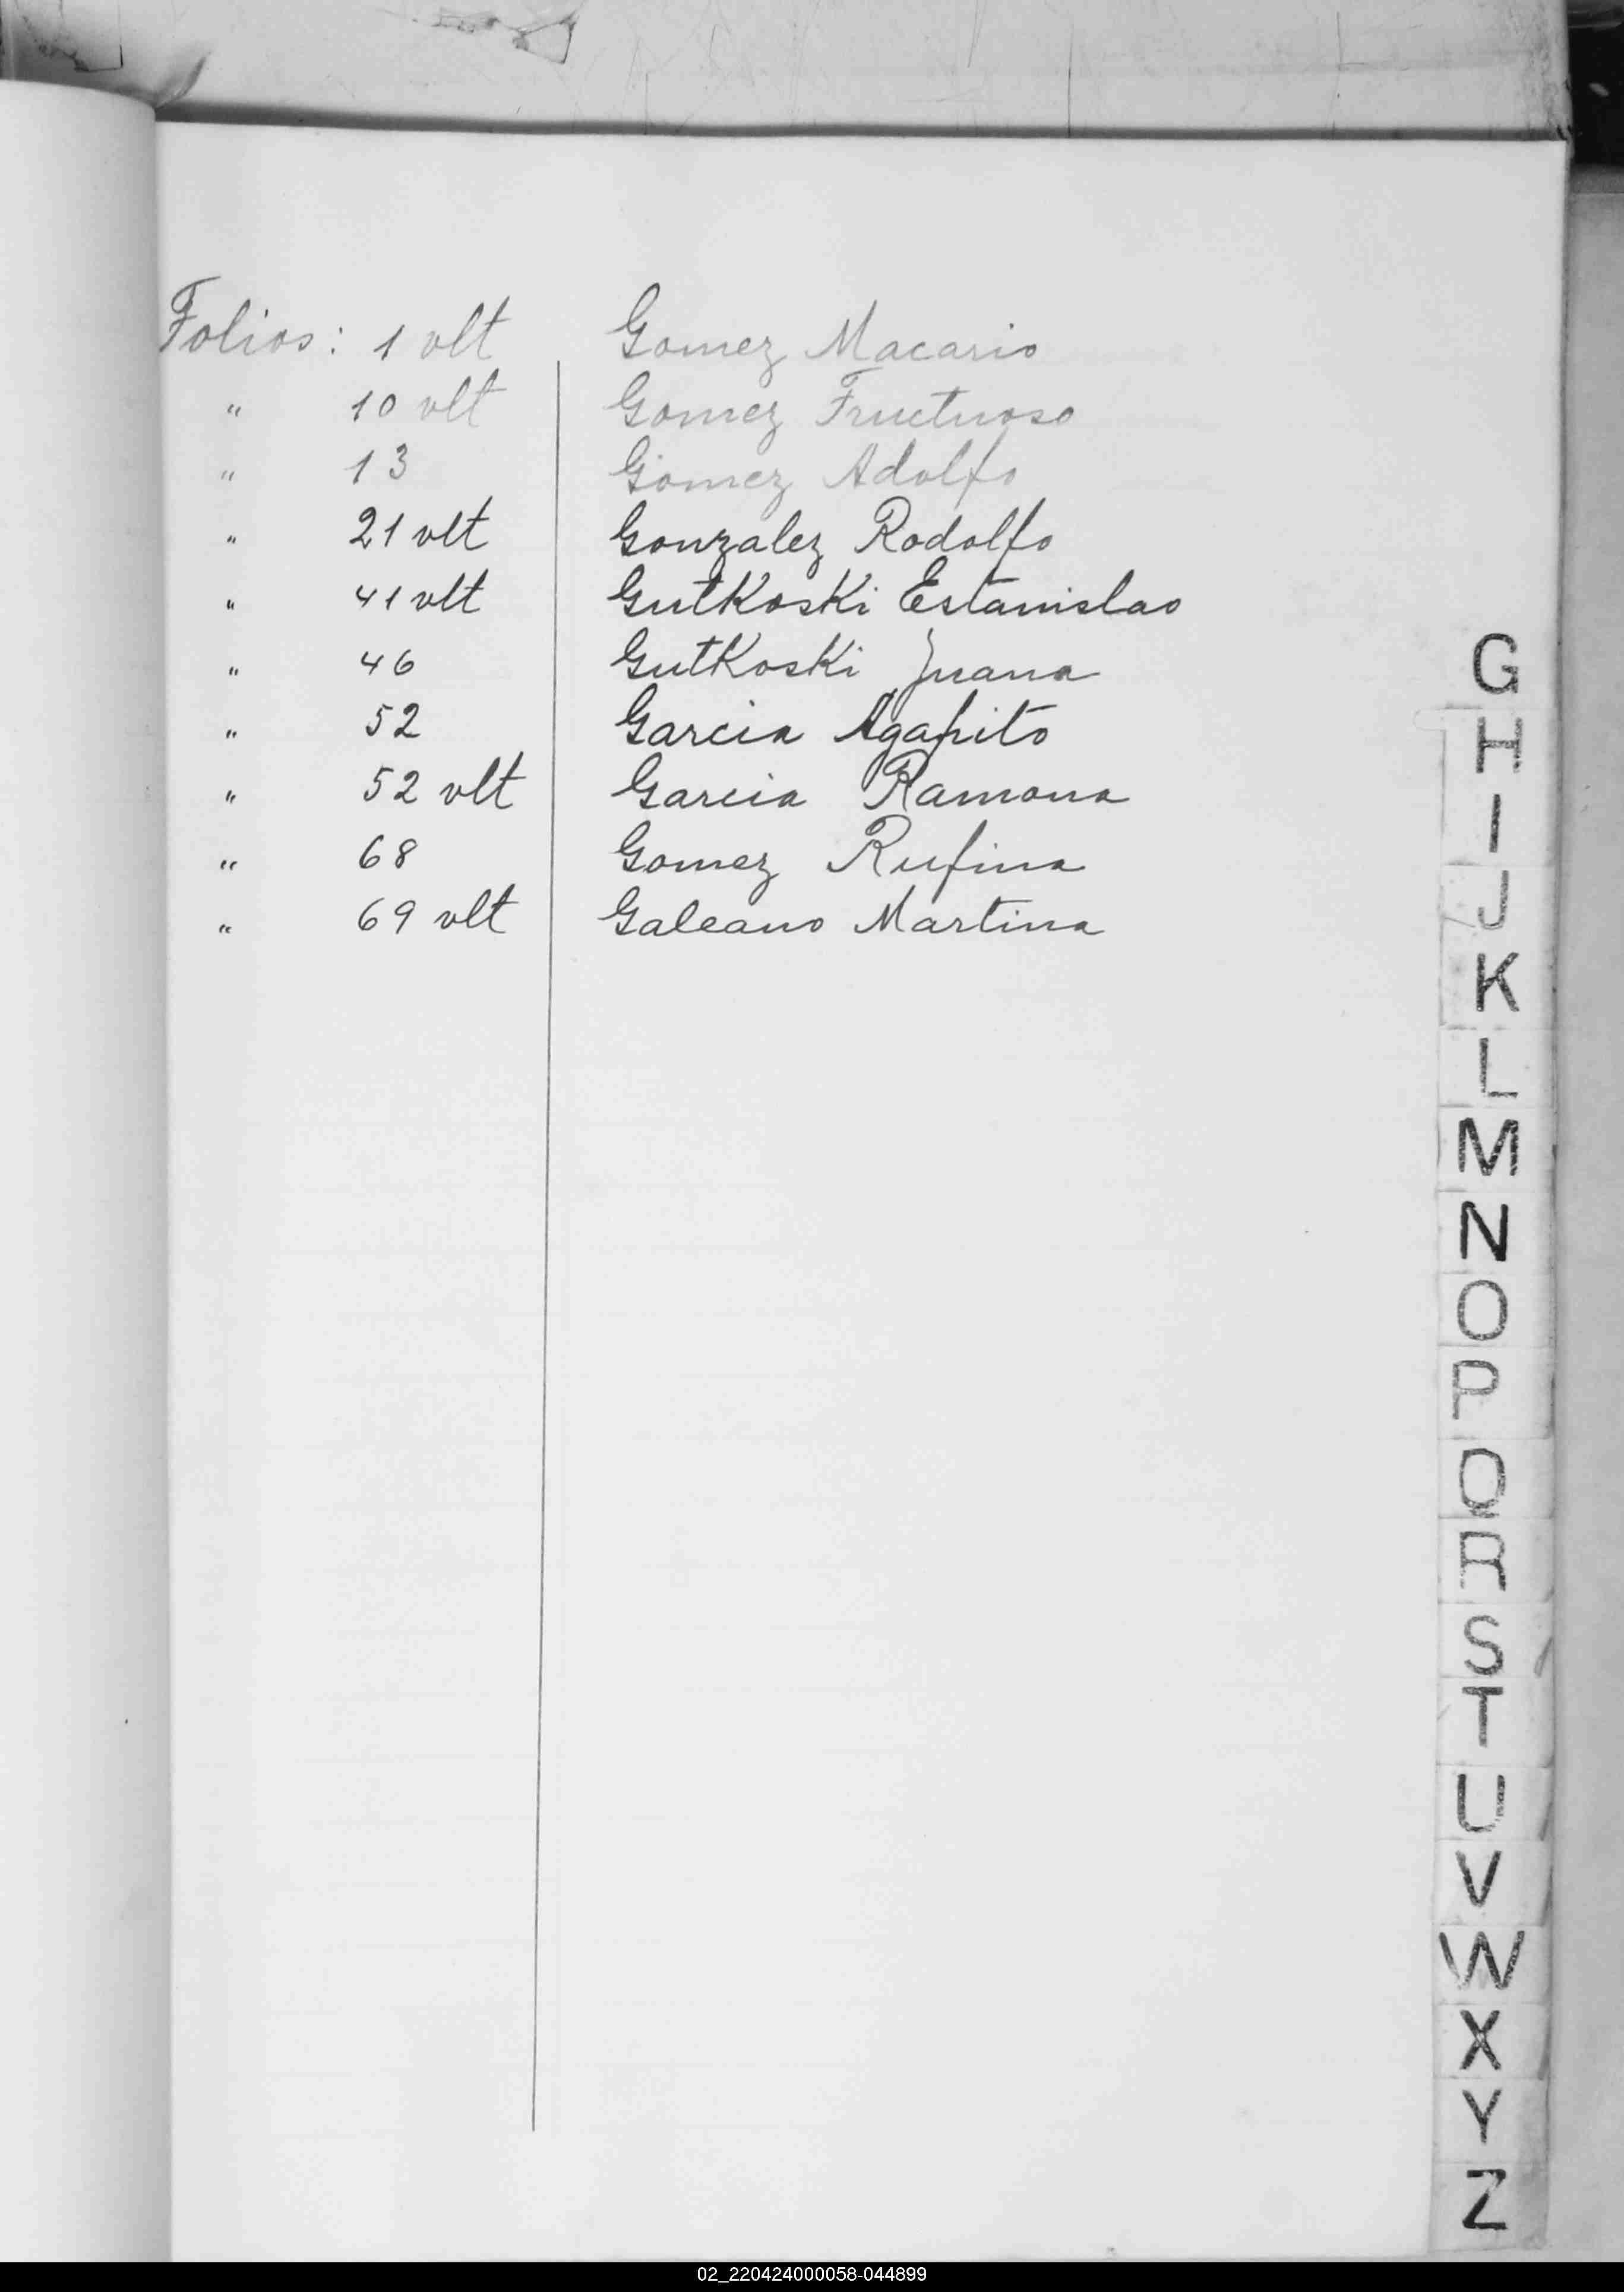 Folios: 1 vlt Gomez Macario
" 10 vlt Gomez Fructuoso
" 13 Gomez Adolfo
" 21 vlt Gonzalez Rodolfo
" 41 vlt GutKoski Estanislao
" 46 GutKoski Juana
" 52 Garcia Agapito
" 52 vlt Garcia Ramona
" 68 Gomez Rufina
" 69 vlt Galeano Martina
G
H
I
J
K
L
M
N
O
P
Q
R
S
T
U
V
W
X
Y
Z
02_220424000058-044899